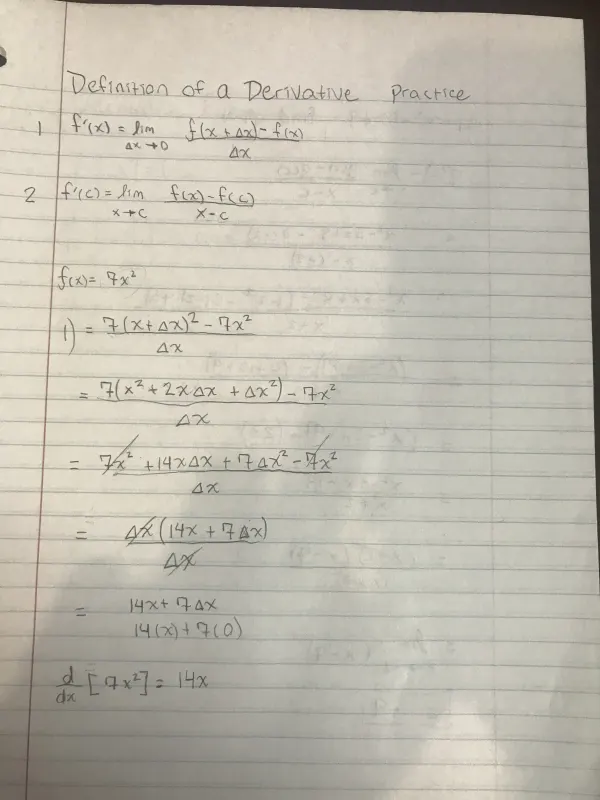 Definition of a Derivative Practice
1 f'(x) = lim Δx→0 f(x + Δx) - f(x) / Δx
2 f'(c) = lim x→c f(x) - f(c) / x - c
f(x) = 7x²
1) = 7(x + Δx)² - 7x² / Δx
= 7(x² + 2xΔx + Δx²) - 7x² / Δx
= 7x² + 14xΔx + 7Δx² - 7x² / Δx
= Δx(14x + 7Δx) / Δx
= 14x + 7Δx
14(x) + 7(0)
d/dx [7x²] = 14x